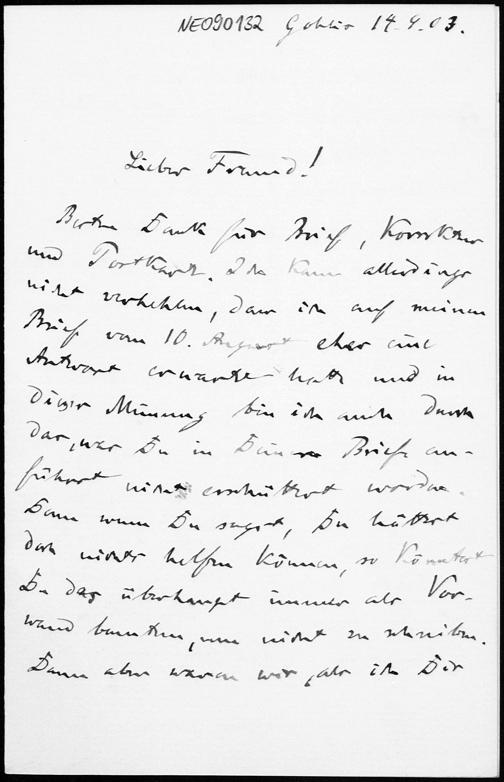 NE090132 Gohlis 14.4.03.
Lieber Freund!
Besten Dank für Brief, Korrektur
und Postkarte. Ich kann allerdings
nicht verhehlen, dass ich auf meinen
Brief vom 10. August eher eine
Antwort erwartet hatte und in
dieser Meinung bin ich auch durch
das, was Du in Deinem Briefe an-
führst nicht erschüttert worden.
Denn wenn Du sagst, Du hättest
doch nichts helfen können, so könntest
Du das überhaupt immer als Vor-
wand benutzen, um nicht zu schreiben.
Dann aber waren wir, als ich Dir